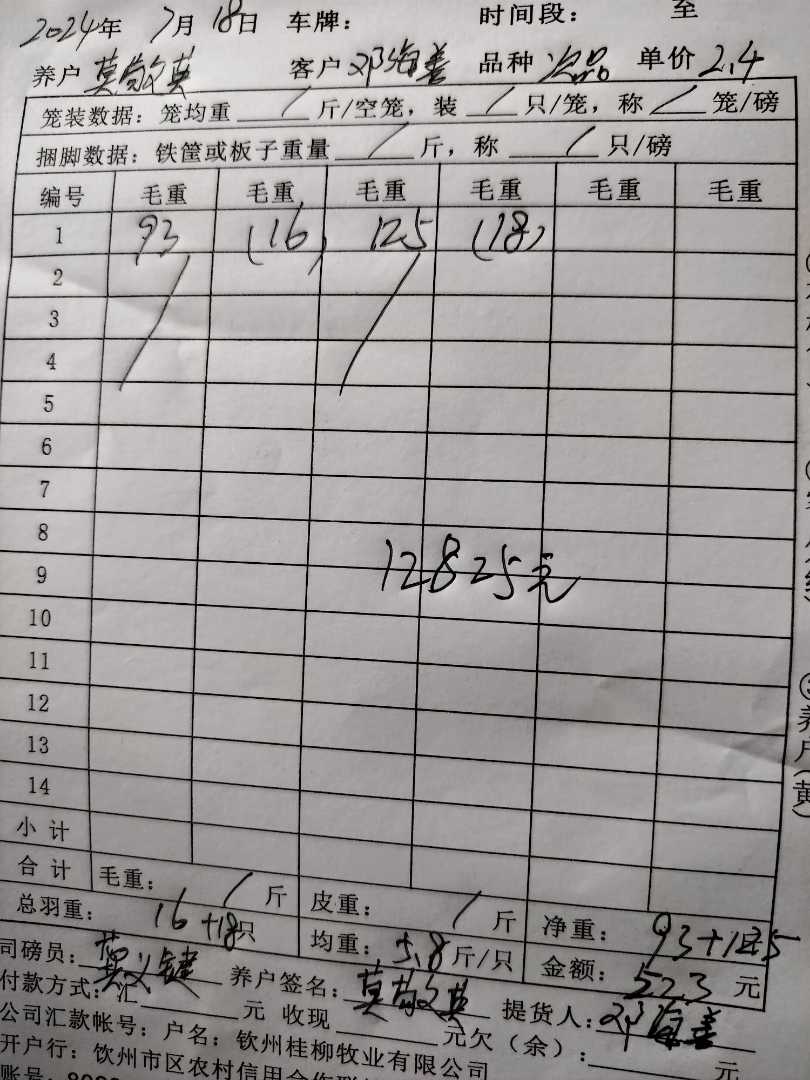 2024年 7月 18日 车牌： 时间段： 至
养户 莫敬英 客户 邓海善 品种 次品 单价 2.4
笼装数据：笼均重 / 斤/空笼，装 / 只/笼，称 / 笼/磅
捆脚数据：铁筐或板子重量 / 斤，称 / 只/磅
编号 毛重 毛重 毛重 毛重 毛重 毛重
1 93 (16) 125 (18)
2
3
4
5
6
7
8
12825元
9
10
11
12
13
14
小计
合计 毛重： / 斤 皮重： / 斤 净重： 93+125
总羽重： 16+18只 均重：5.8斤/只 金额：523元
司磅员： 养户签名： 莫敬英 提货人：邓海善
付款方式：汇 元 收现 元欠（余）： 元
公司汇款帐号：户名：钦州桂柳牧业有限公司
开户行：钦州市区农村信用合作联
账号：
养户(黄)